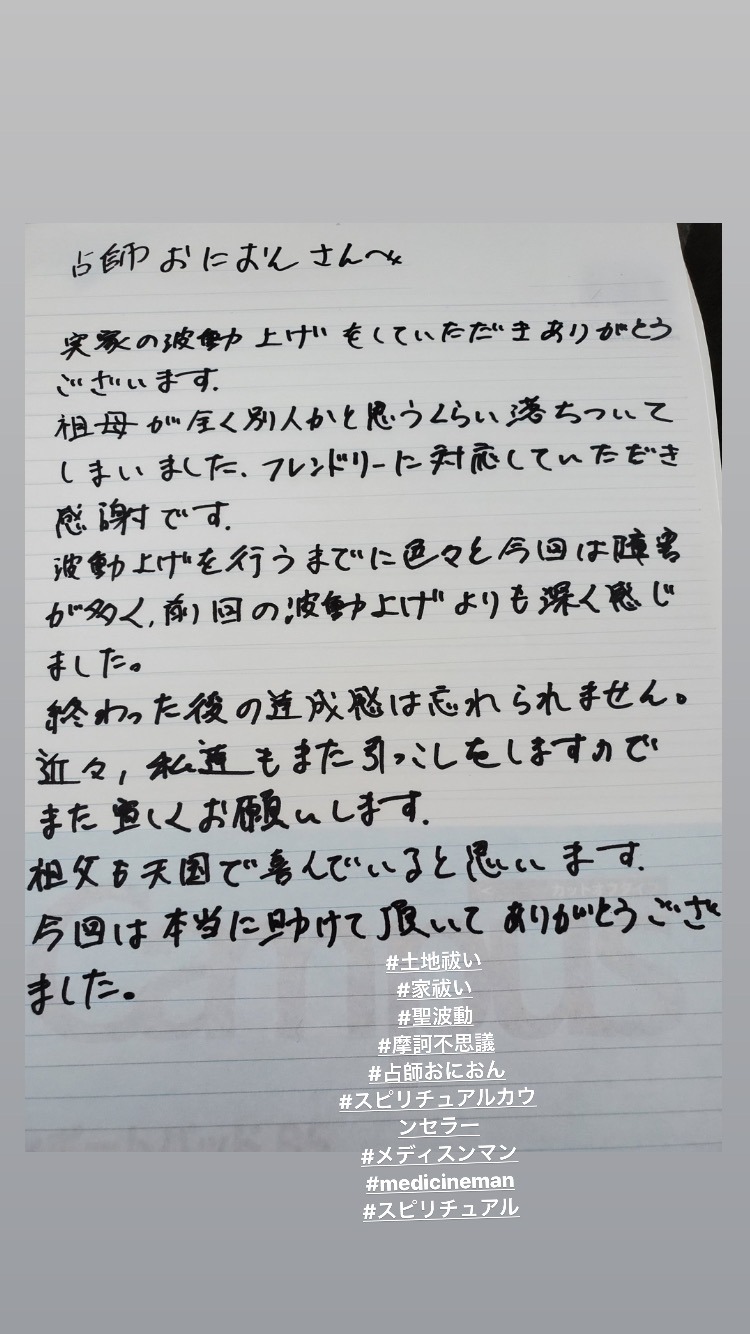 占師 おにおん さんへ
実家の波動上げをしていただきありがとう
ございます.
祖母が全く別人かと思うくらい落ちついて
しまいました. フレンドリーに対応していただき
感謝です.
波動上げを行うまでに色々と今回は障害
が多く, 前回の波動上げよりも深く感じ
ました。
終わった後の達成感は忘れられません。
近々, 私達もまた引っこしをしますので
また宜しくお願いします.
祖父も天国で喜んでいると思います.
今回は本当に助けて頂いて ありがとうござ
ました。
#土地祓い
#家祓い
#聖波動
#摩訶不思議
#占師おにおん
#スピリチュアルカウ
ンセラー
#メディスンマン
#medicineman
#スピリチュアル